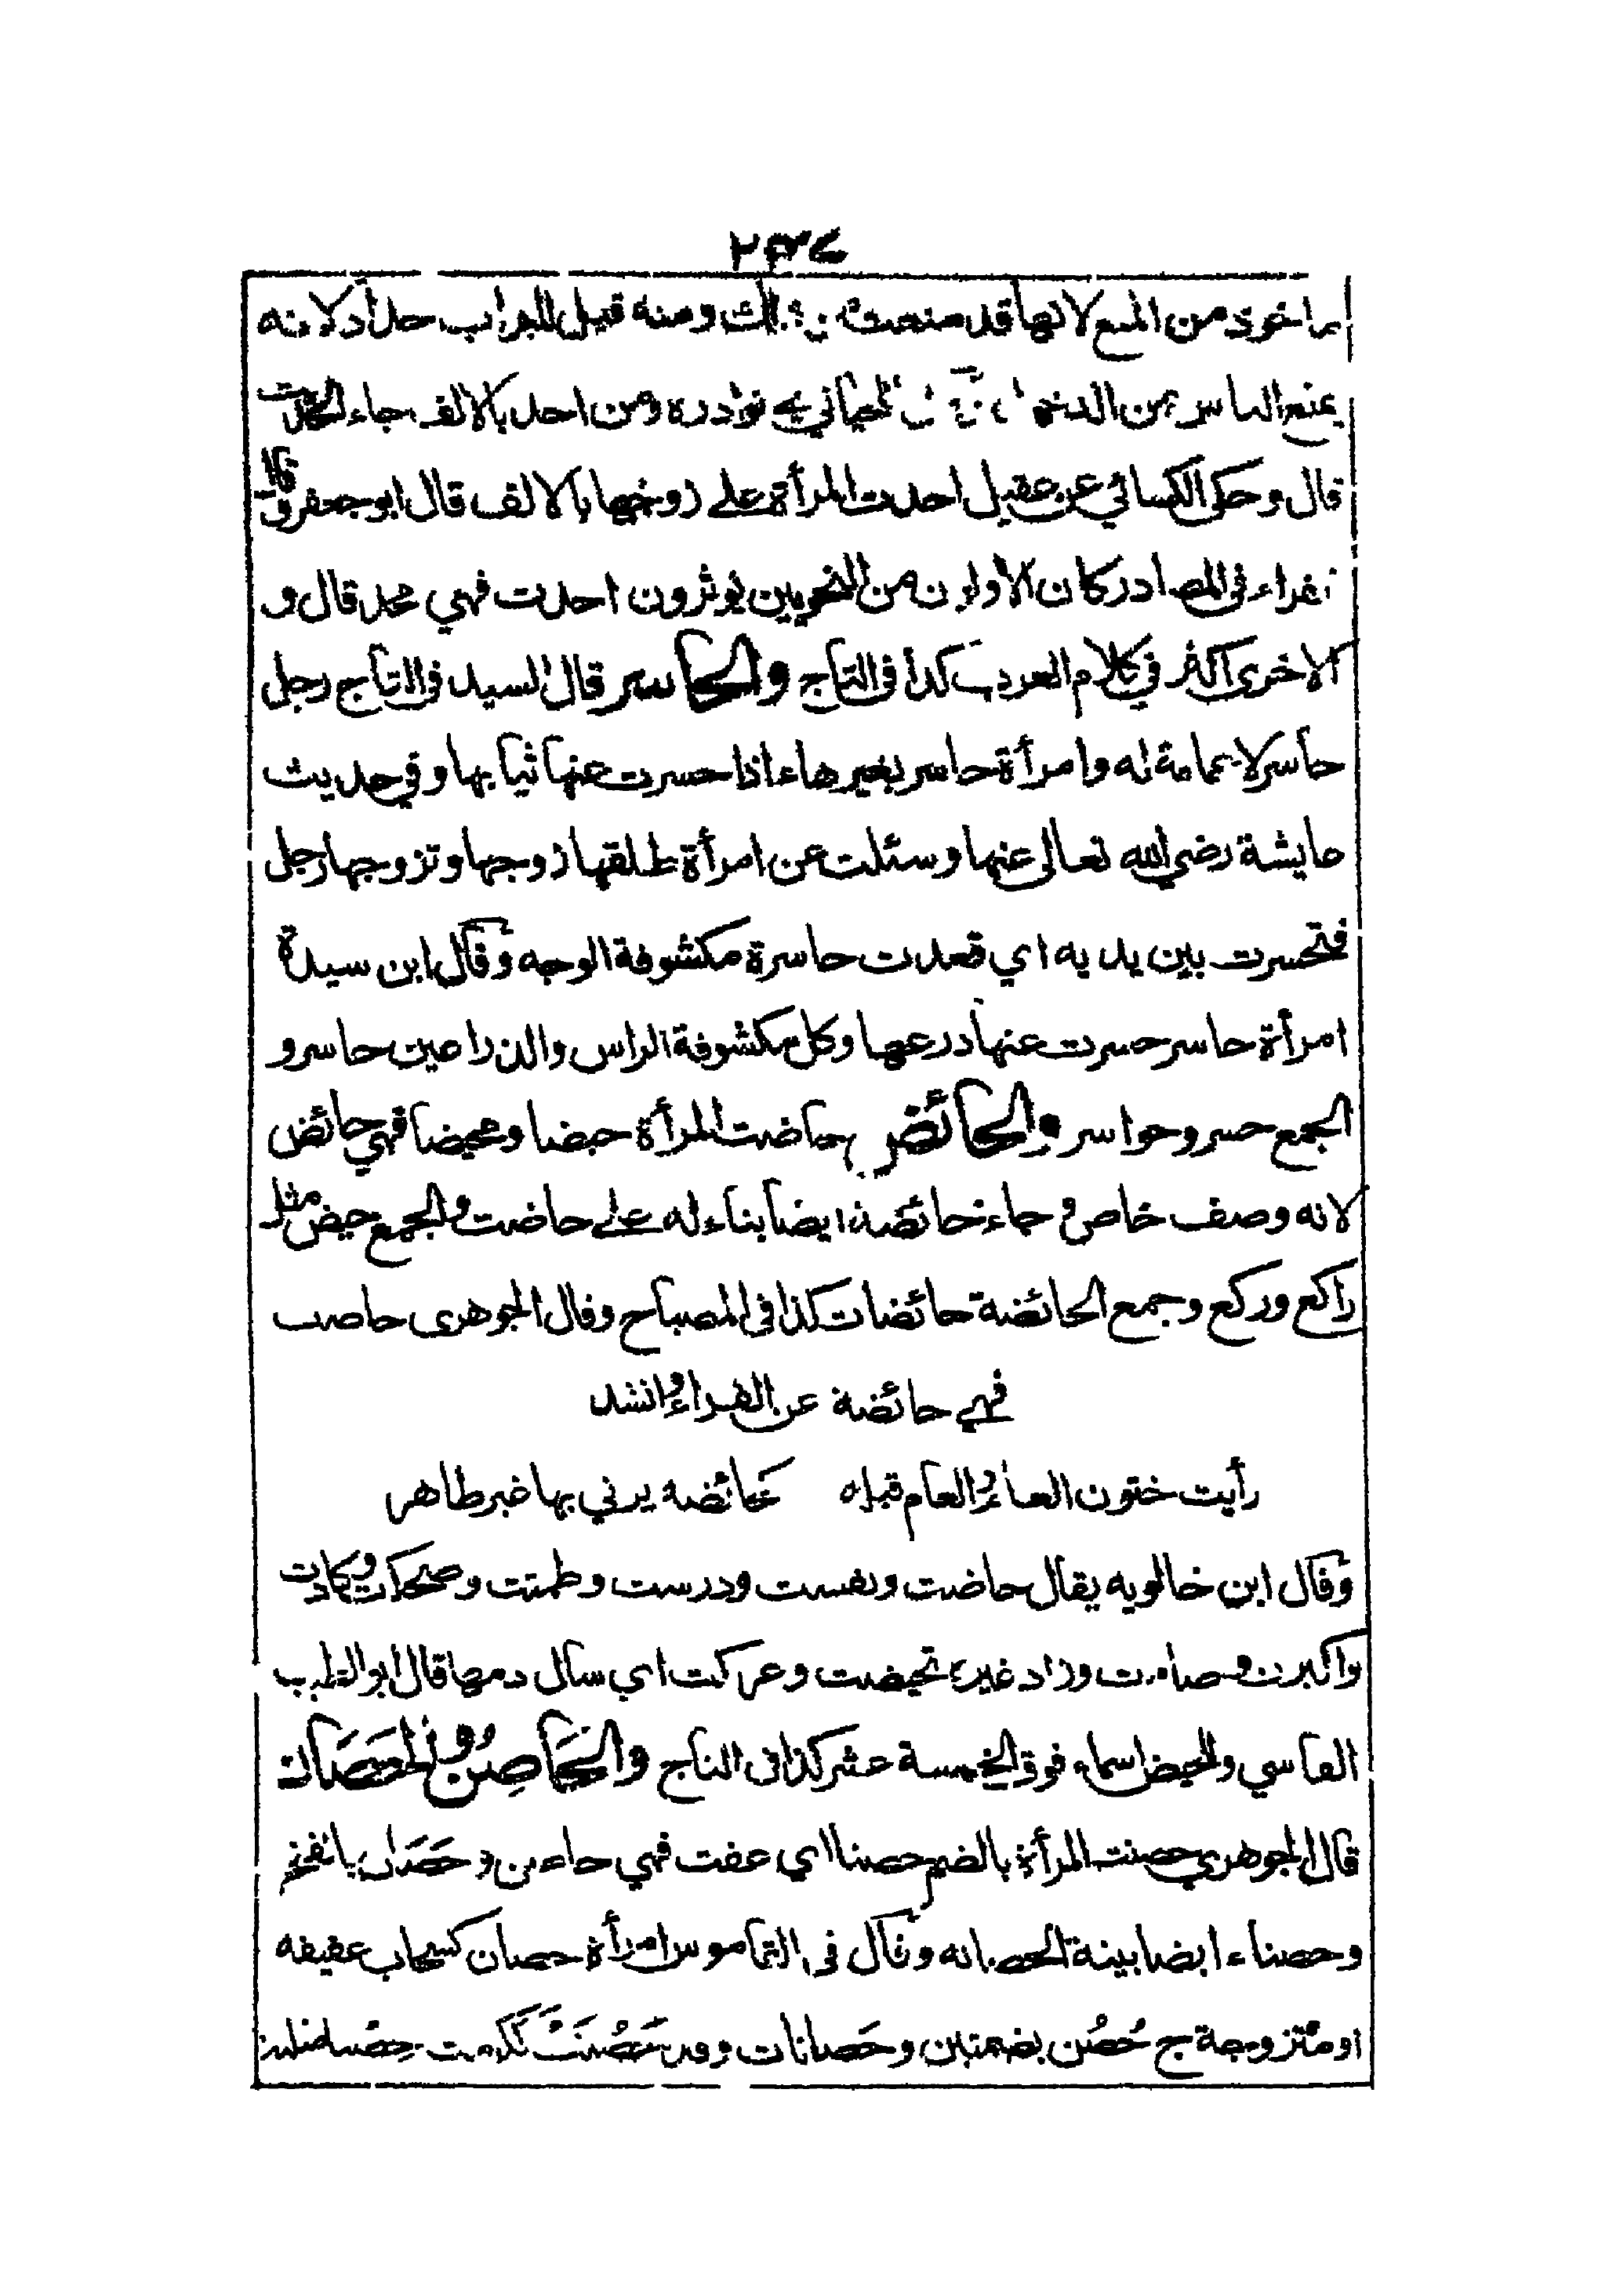 ٢٣٤
ماخوذ من المنع لانها قد منعت من ذلك ومنه قيل للبواب حدادلانه
يمنع الناس من الدخول اللحياني في نوادره ومن احد بالالف جاء الحديث
قال وحكى الكسائي عن عقيل احدت المرأة على زوجها بالالف قال ابو جعفر وقال
الفراء فى المصادر كان الاولون من النحويين يوثرون احدت فهي محد قال و
الاخرى اكثر في كلام العرب كذا فى التاج والحاسر قال السيد فى التاج رجل
حاسر لا عمامة له وامرأة حاسر بغير هاء اذا حسرت عنها ثيابها وفي حديث
عايشة رضي الله تعالى عنها وسئلت عن امرأة طلقها زوجها وتزوجها رجل
فتحسرت بين يديه اي قعدت حاسرة مكشوفة الوجه وقال ابن سيدة
امرأة حاسر حسرت عنها درعها وكل مكشوفة الراس والذراعين حاسر و
الجمع حسر وحواسر والحائض حاضت المرأة حيضا ومحيضا فهي حائض
لانه وصف خاص و جاء حائضة ايضا بناء له على حاضت والجمع حيض مثل
راكع وركع وجمع الحائضة حائضات كذا فى المصباح وقال الجوهرى حاضت
فهي حائضة عن الفراء وانشد
رأيت ختون العام والعام قبله كحائضة يزني بها غير طاهر
وقال ابن خالويه يقال حاضت ونفست ودرست وطمثت وضحكت وكادت
واكبرت وصامت وزاد غيره تحيضت وعركت اي سال دمها قال ابو الطيب
الفاسي وللحيض اسماء فوق الخمسة عشر كذا فى التاج والحَاصِنُ والحَصَان
قال الجوهري حصنت المرأة بالضم حصنا اي عفت فهي حاصن و حَصَان بالفتح
وحصناء ايضا بينة الحصانه وقال فى القاموس امرأة حصان كسحاب عفيفه
او متزوجة ج حُصُن بضمتين وحَصانات وقد حَصُنَتْ ككرمت